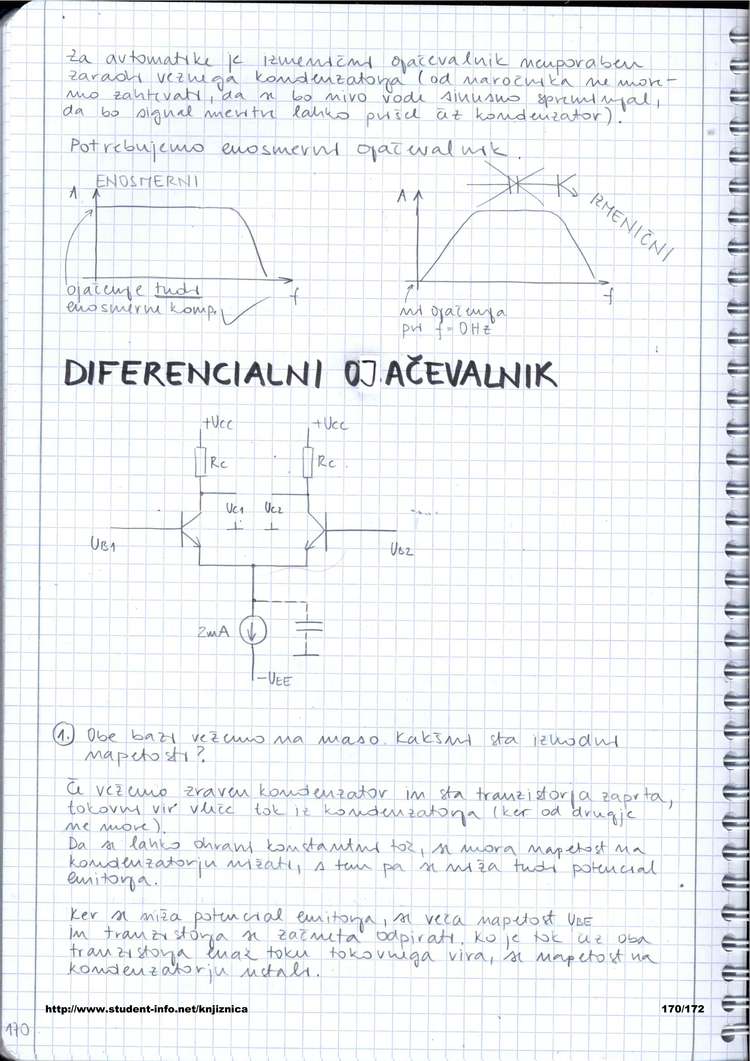 Za avtomatike je izmenični ojačevalnik neuporaben
zaradi veznega kondenzatorja (od naročnika ne more-
mo zahtevati, da se bo nivo vode sinusno spreminjal,
da bo signal meritve lahko prišel čez kondenzator).
Potrebujemo enosmerni ojačevalnik.
ENOSMERNI
A
f
ojačenje tudi
enosmerne komp.
A
IZMENIČNI
f
ni ojačenja
pri f=0Hz
DIFERENCIALNI OJAČEVALNIK
+UCC
+UCC
RC
RC
UC1
UC2
UB1
UB2
2mA
-UEE
1. Obe bazi vežemo na maso. Kakšni sta izhodni
napetosti?
Če vežemo zraven kondenzator in sta tranzistorja zaprta,
tokovni vir vleče tok iz kondenzatorja (ker od drugje
ne more).
Da se lahko ohrani konstantni tok, se mora napetost na
kondenzatorju nižati, s tem pa se niža tudi potencial
emitorja.
Ker se niža potencial emitorja, se veča napetost UBE
in tranzistorja se začneta odpirati. Ko je tok čez oba
tranzistorja enak toku tokovnega vira, se napetost na
kondenzatorju ustali.
http://www.student-info.net/knjiznica
170/172
170